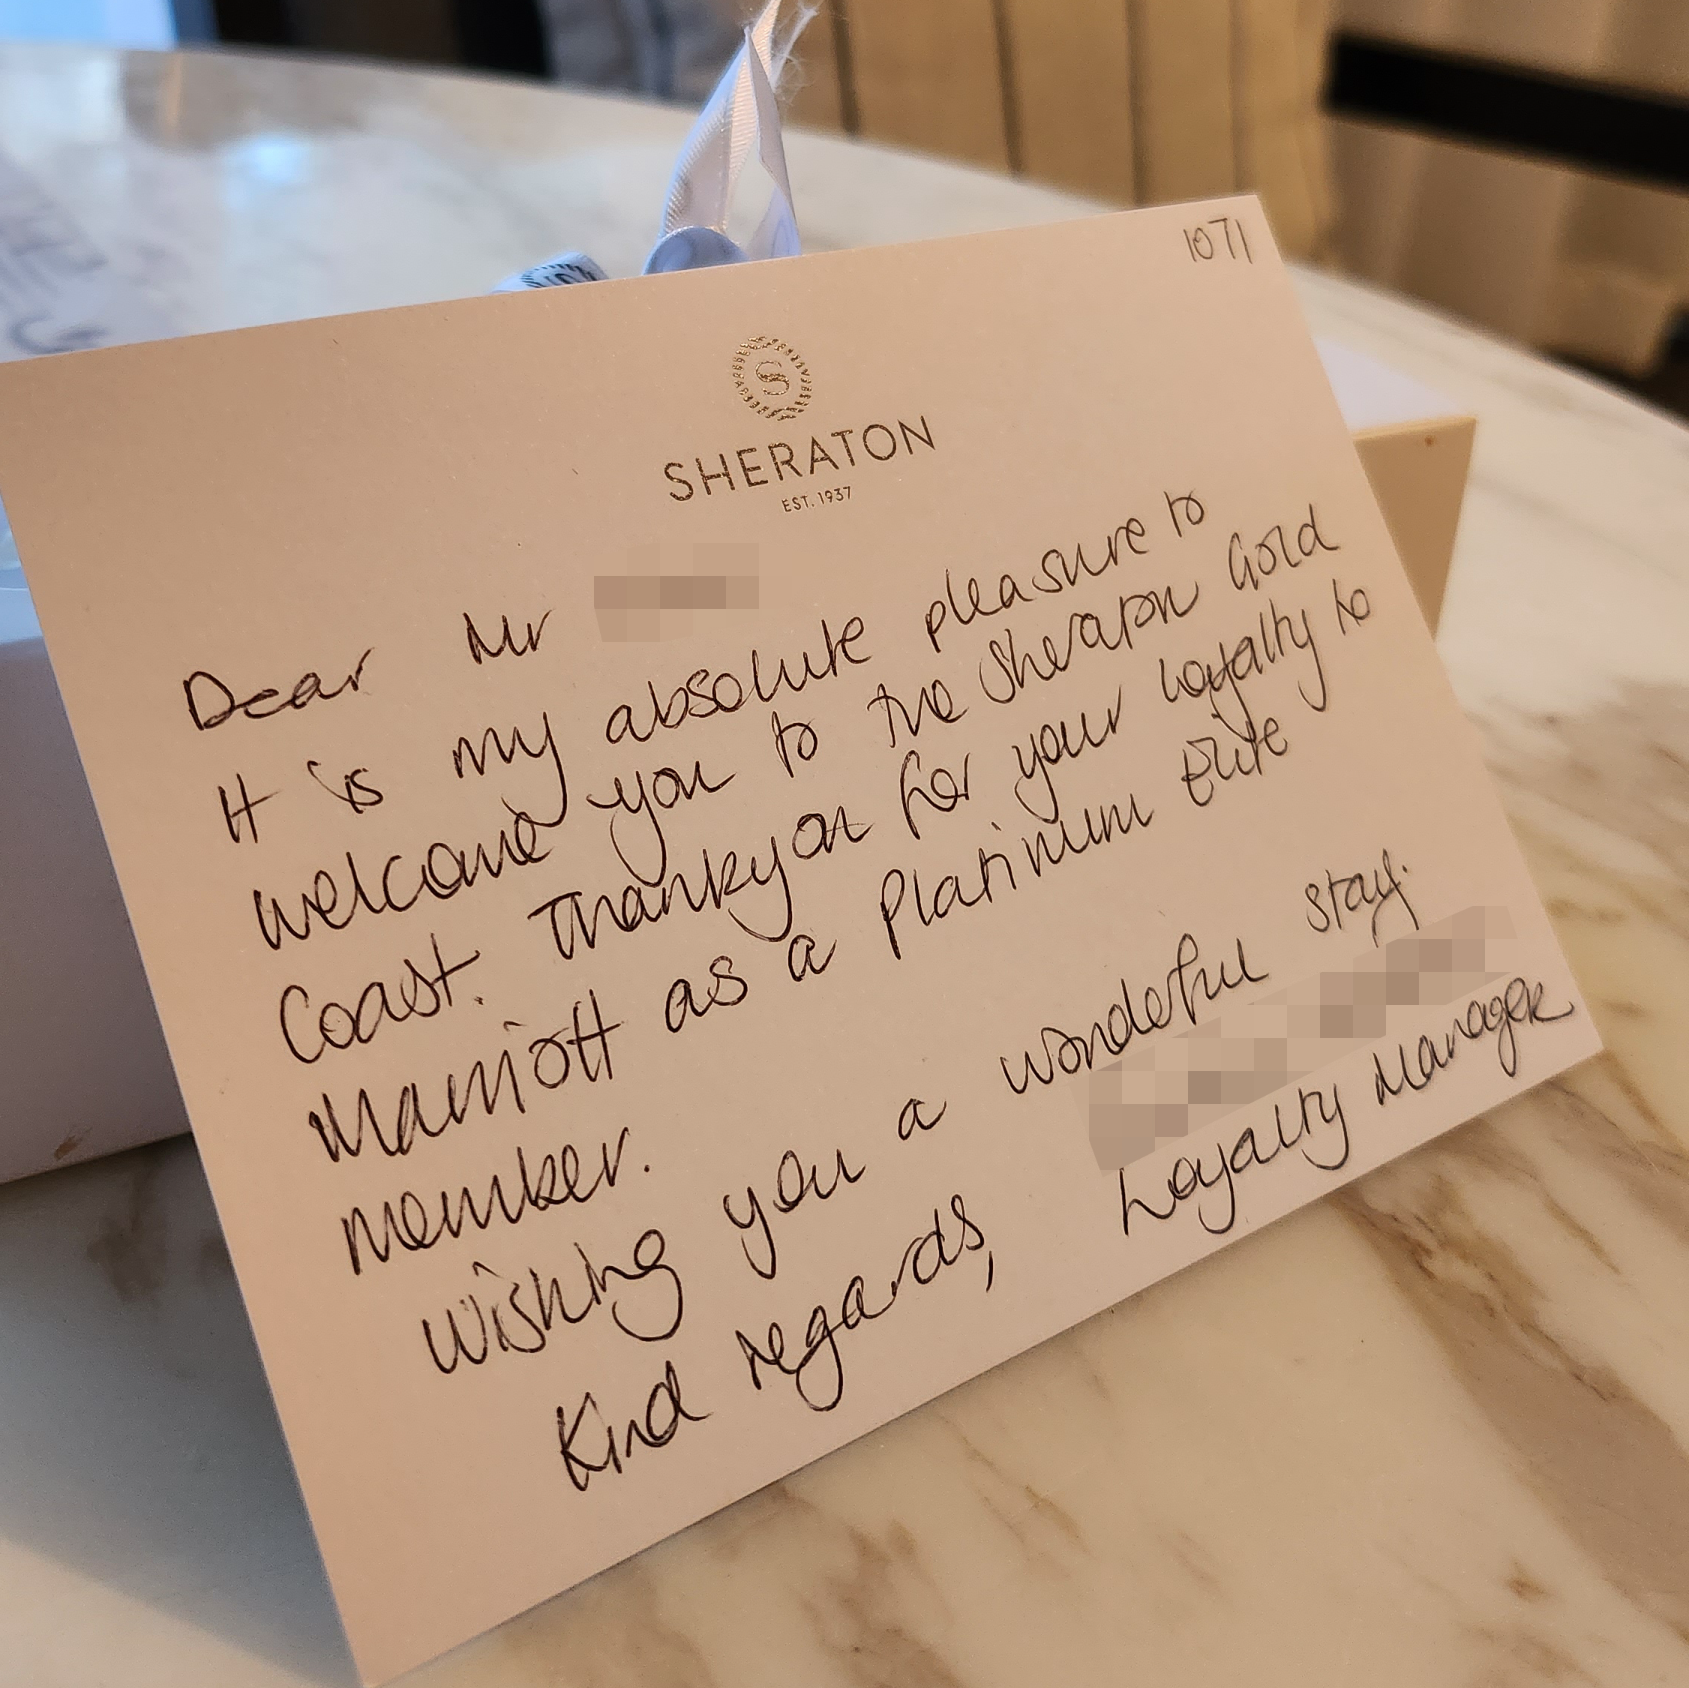 1071
S
SHERATON
EST. 1937
Dear Mr
It is my absolute pleasure to
welcome you to the Sheraton Gold
Coast. Thankyou for your loyalty to
Marriott as a Platinum Elite
member.
Wishing you a wonderful stay.
Kind regards,
Loyalty Manager